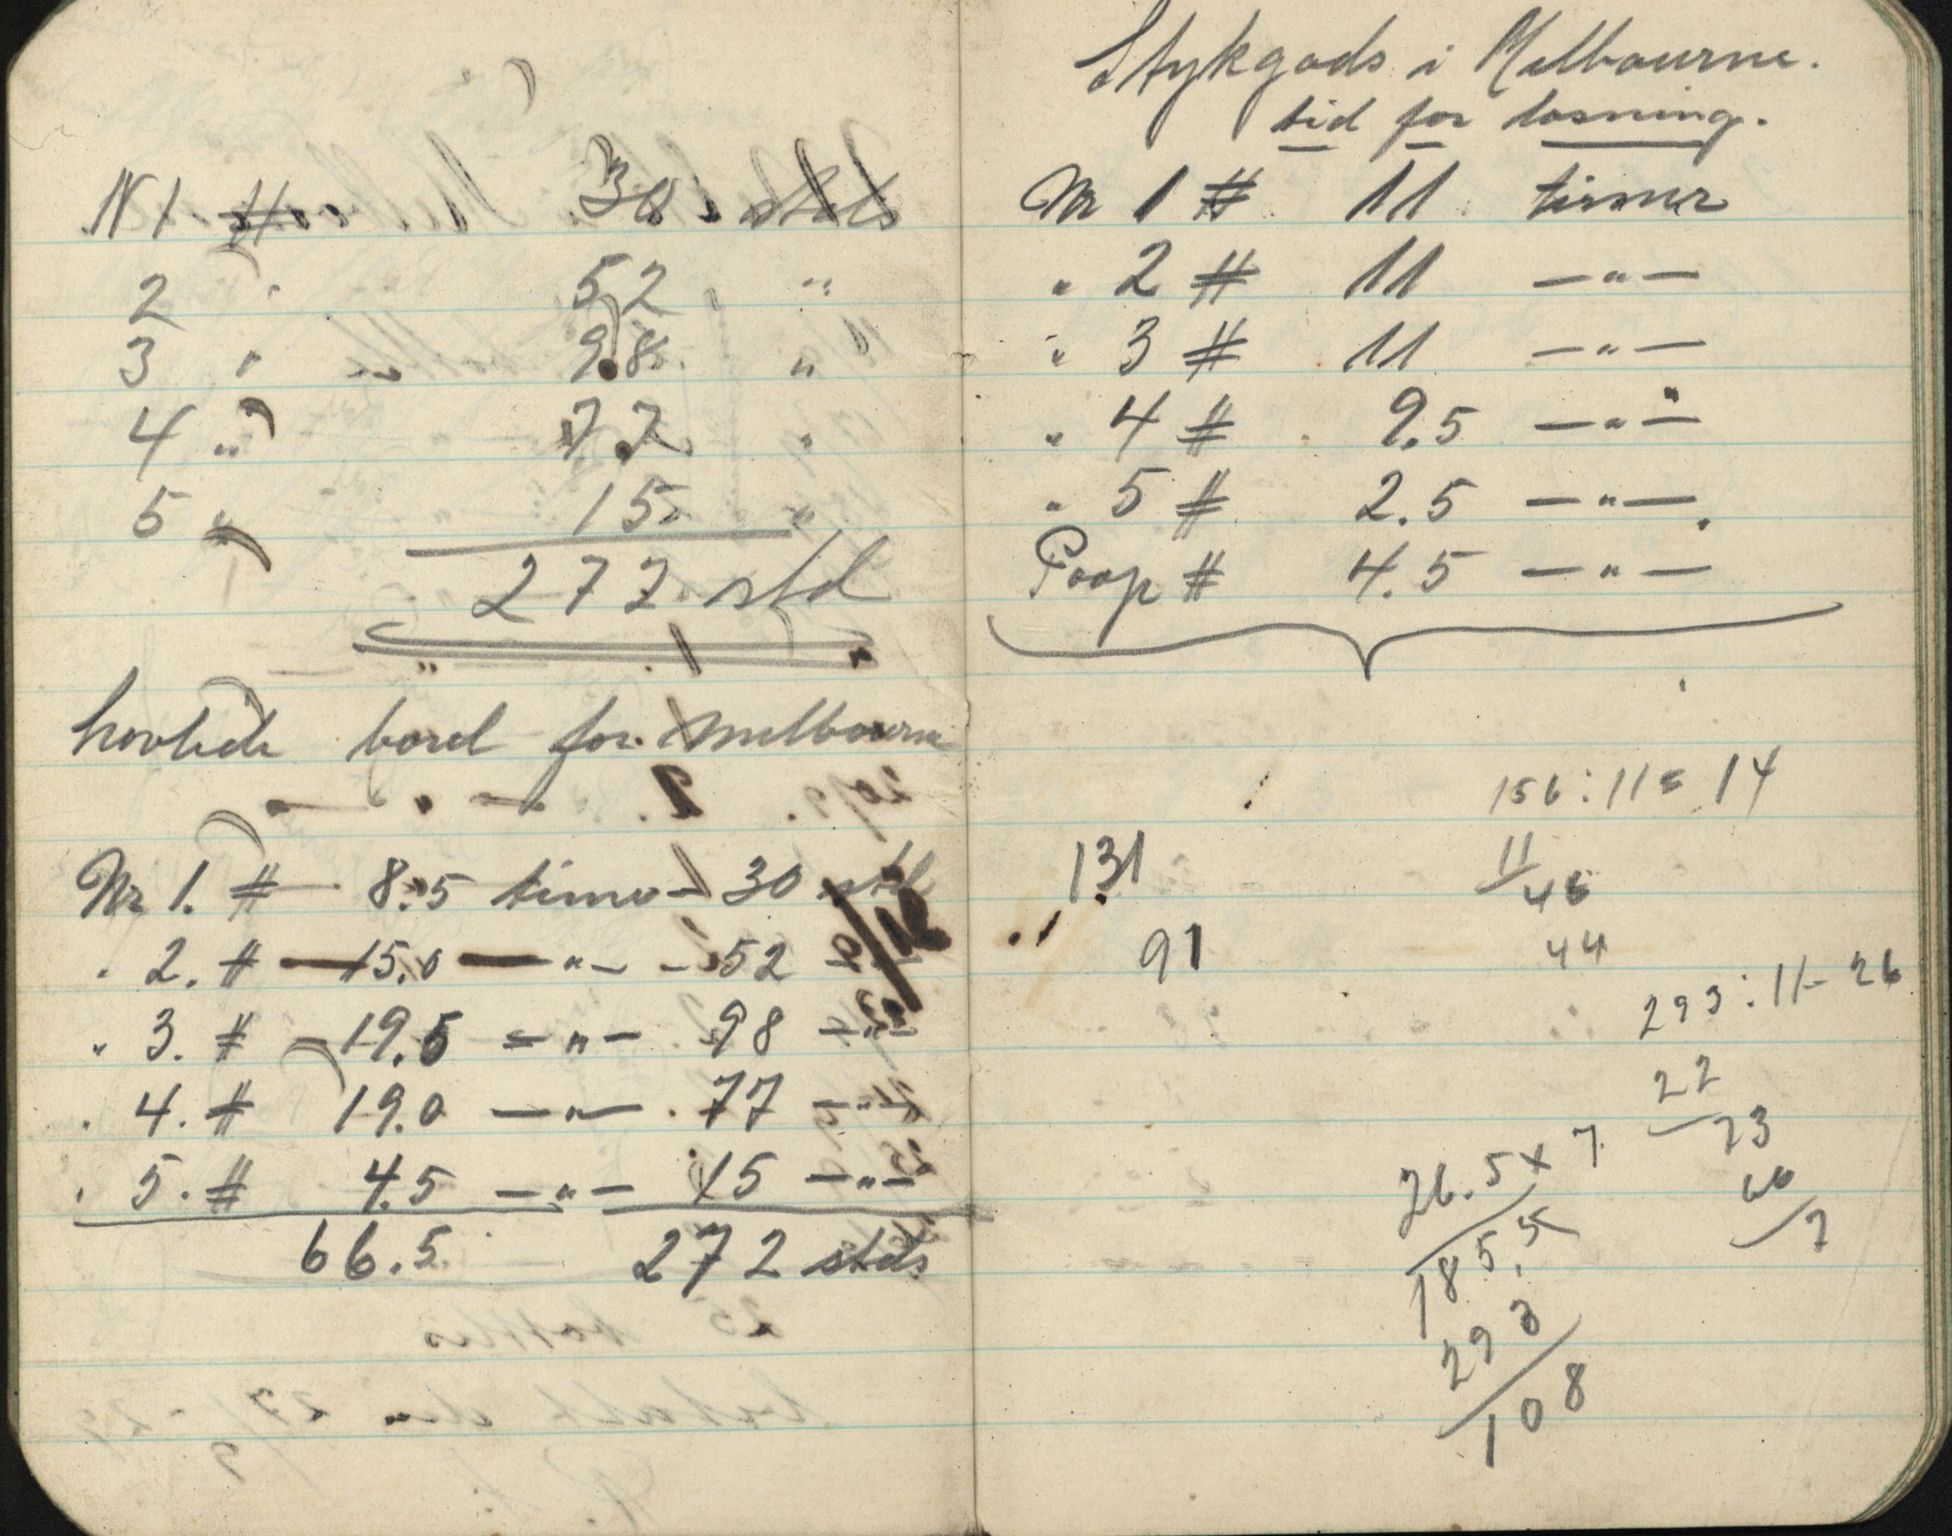 N 1 # 30 stds
2 " 52 "
3 " 98 "
4 " 77 "
5 " 15 "
272 std
hovlede bord for Melbourne
Nr 1. # 8.5 timer - 30 std
" 2. # — 15.0 — " — - 52 — " —
" 3. # — 19.5 — " — 98 — " —
" 4. # 19.0 — " — 77 — " —
" 5. # 4.5 — " — 15 — " —
66.5 272 stds
Stykgods i Melbourne.
tid for losning.
Nr 1 # 11 timer
" 2 # 11 — " —
" 3 # 11 — " —
" 4 # 9.5 — " —
" 5 # 2.5 — " —
Poop # 4.5 — " —
156 : 11 = 14
131
11
46
91
44
293 : 11 - 26
22
73
26.5 x 7
66
7
185.5
293
108